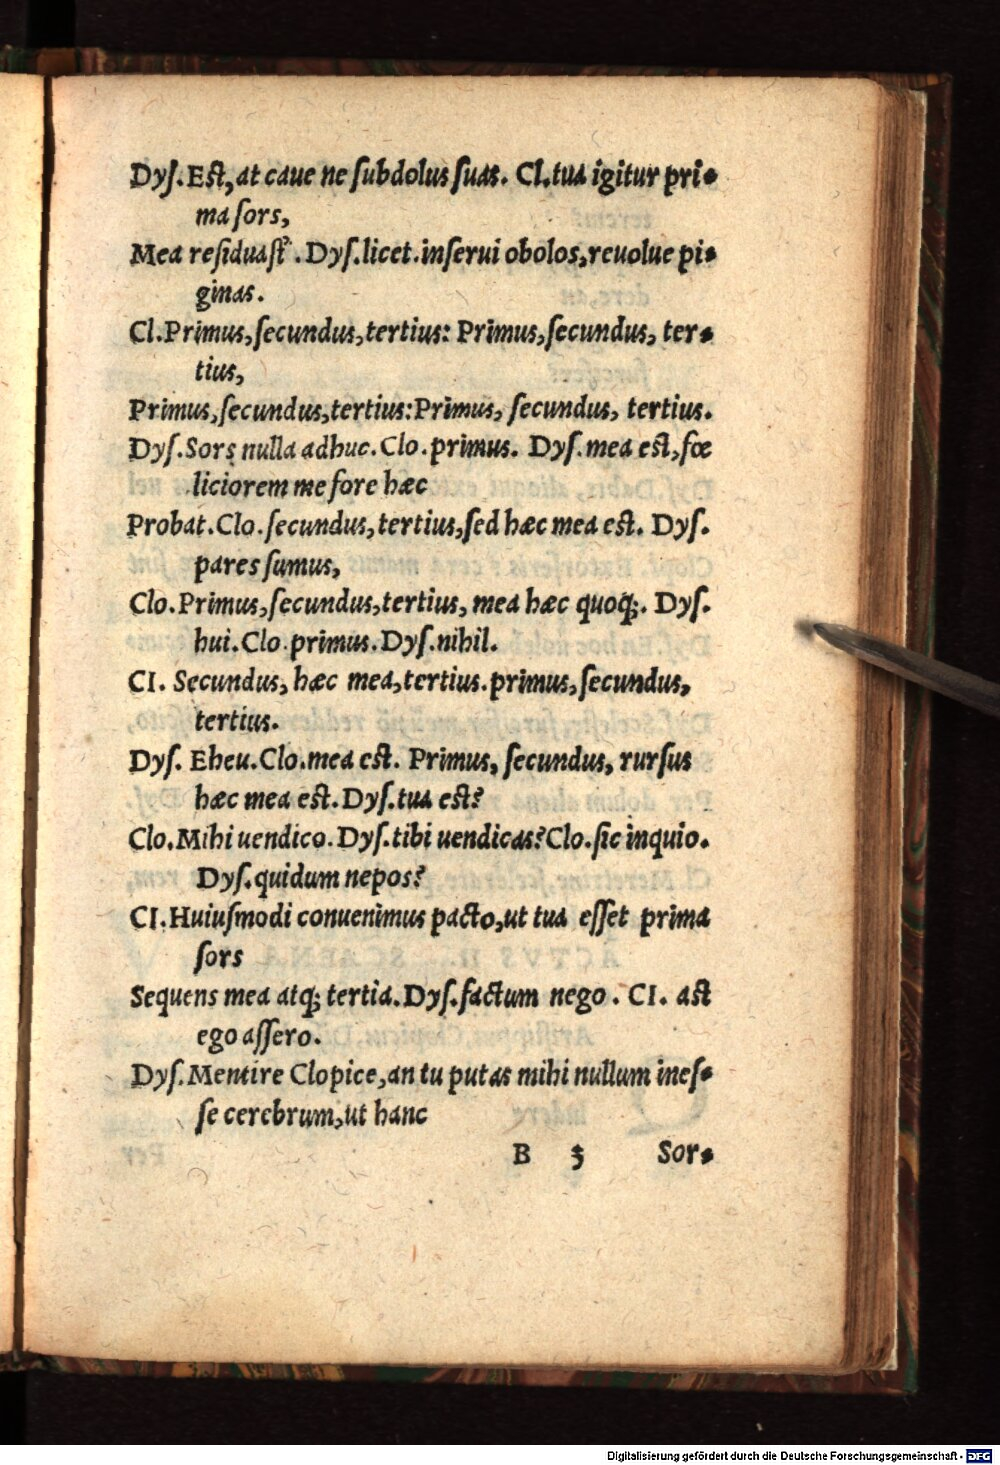 Dyſ. Eſt, at caue ne ſubdolus ſuas. Cl. tua igitur pri-
ma ſors,
Mea reſiduaſt᾽. Dyſ. licet. inſerui obolos, reuolue pi-
ginas.
Cl. Primus, ſecundus, tertius: Primus, ſecundus, ter-
tius,
Primus, ſecundus, tertius: Primus, ſecundus, tertius.
Dyſ. Sors nulla adhuc. Clo. primus. Dyſ. mea eſt, fœ
liciorem me fore hæc
Probat. Clo. ſecundus, tertius, ſed hæc mea eſt. Dyſ.
pares ſumus,
Clo. Primus, ſecundus, tertius, mea hæc quoq;. Dyſ.
hui. Clo. primus. Dyſ. nihil.
Cl. Secundus, hæc mea, tertius. primus, ſecundus,
tertius.
Dyſ. Eheu. Clo. mea eſt. Primus, ſecundus, rurſus
hæc mea eſt. Dyſ. tua eſt?
Clo. Mihi uendico. Dyſ. tibi uendicas? Clo. ſic inquio.
Dyſ. quidum nepos?
Cl. Huiuſmodi conuenimus pacto, ut tua eſſet prima
ſors
Sequens mea atq; tertia. Dyſ. factum nego. Cl. aſt
ego aſſero.
Dyſ. Mentire Clopice, an tu putas mihi nullum ineſ-
ſe cerebrum, ut hanc
B 3 Sor-
Digitalisierung gefördert durch die Deutsche Forschungsgemeinschaft - DFG